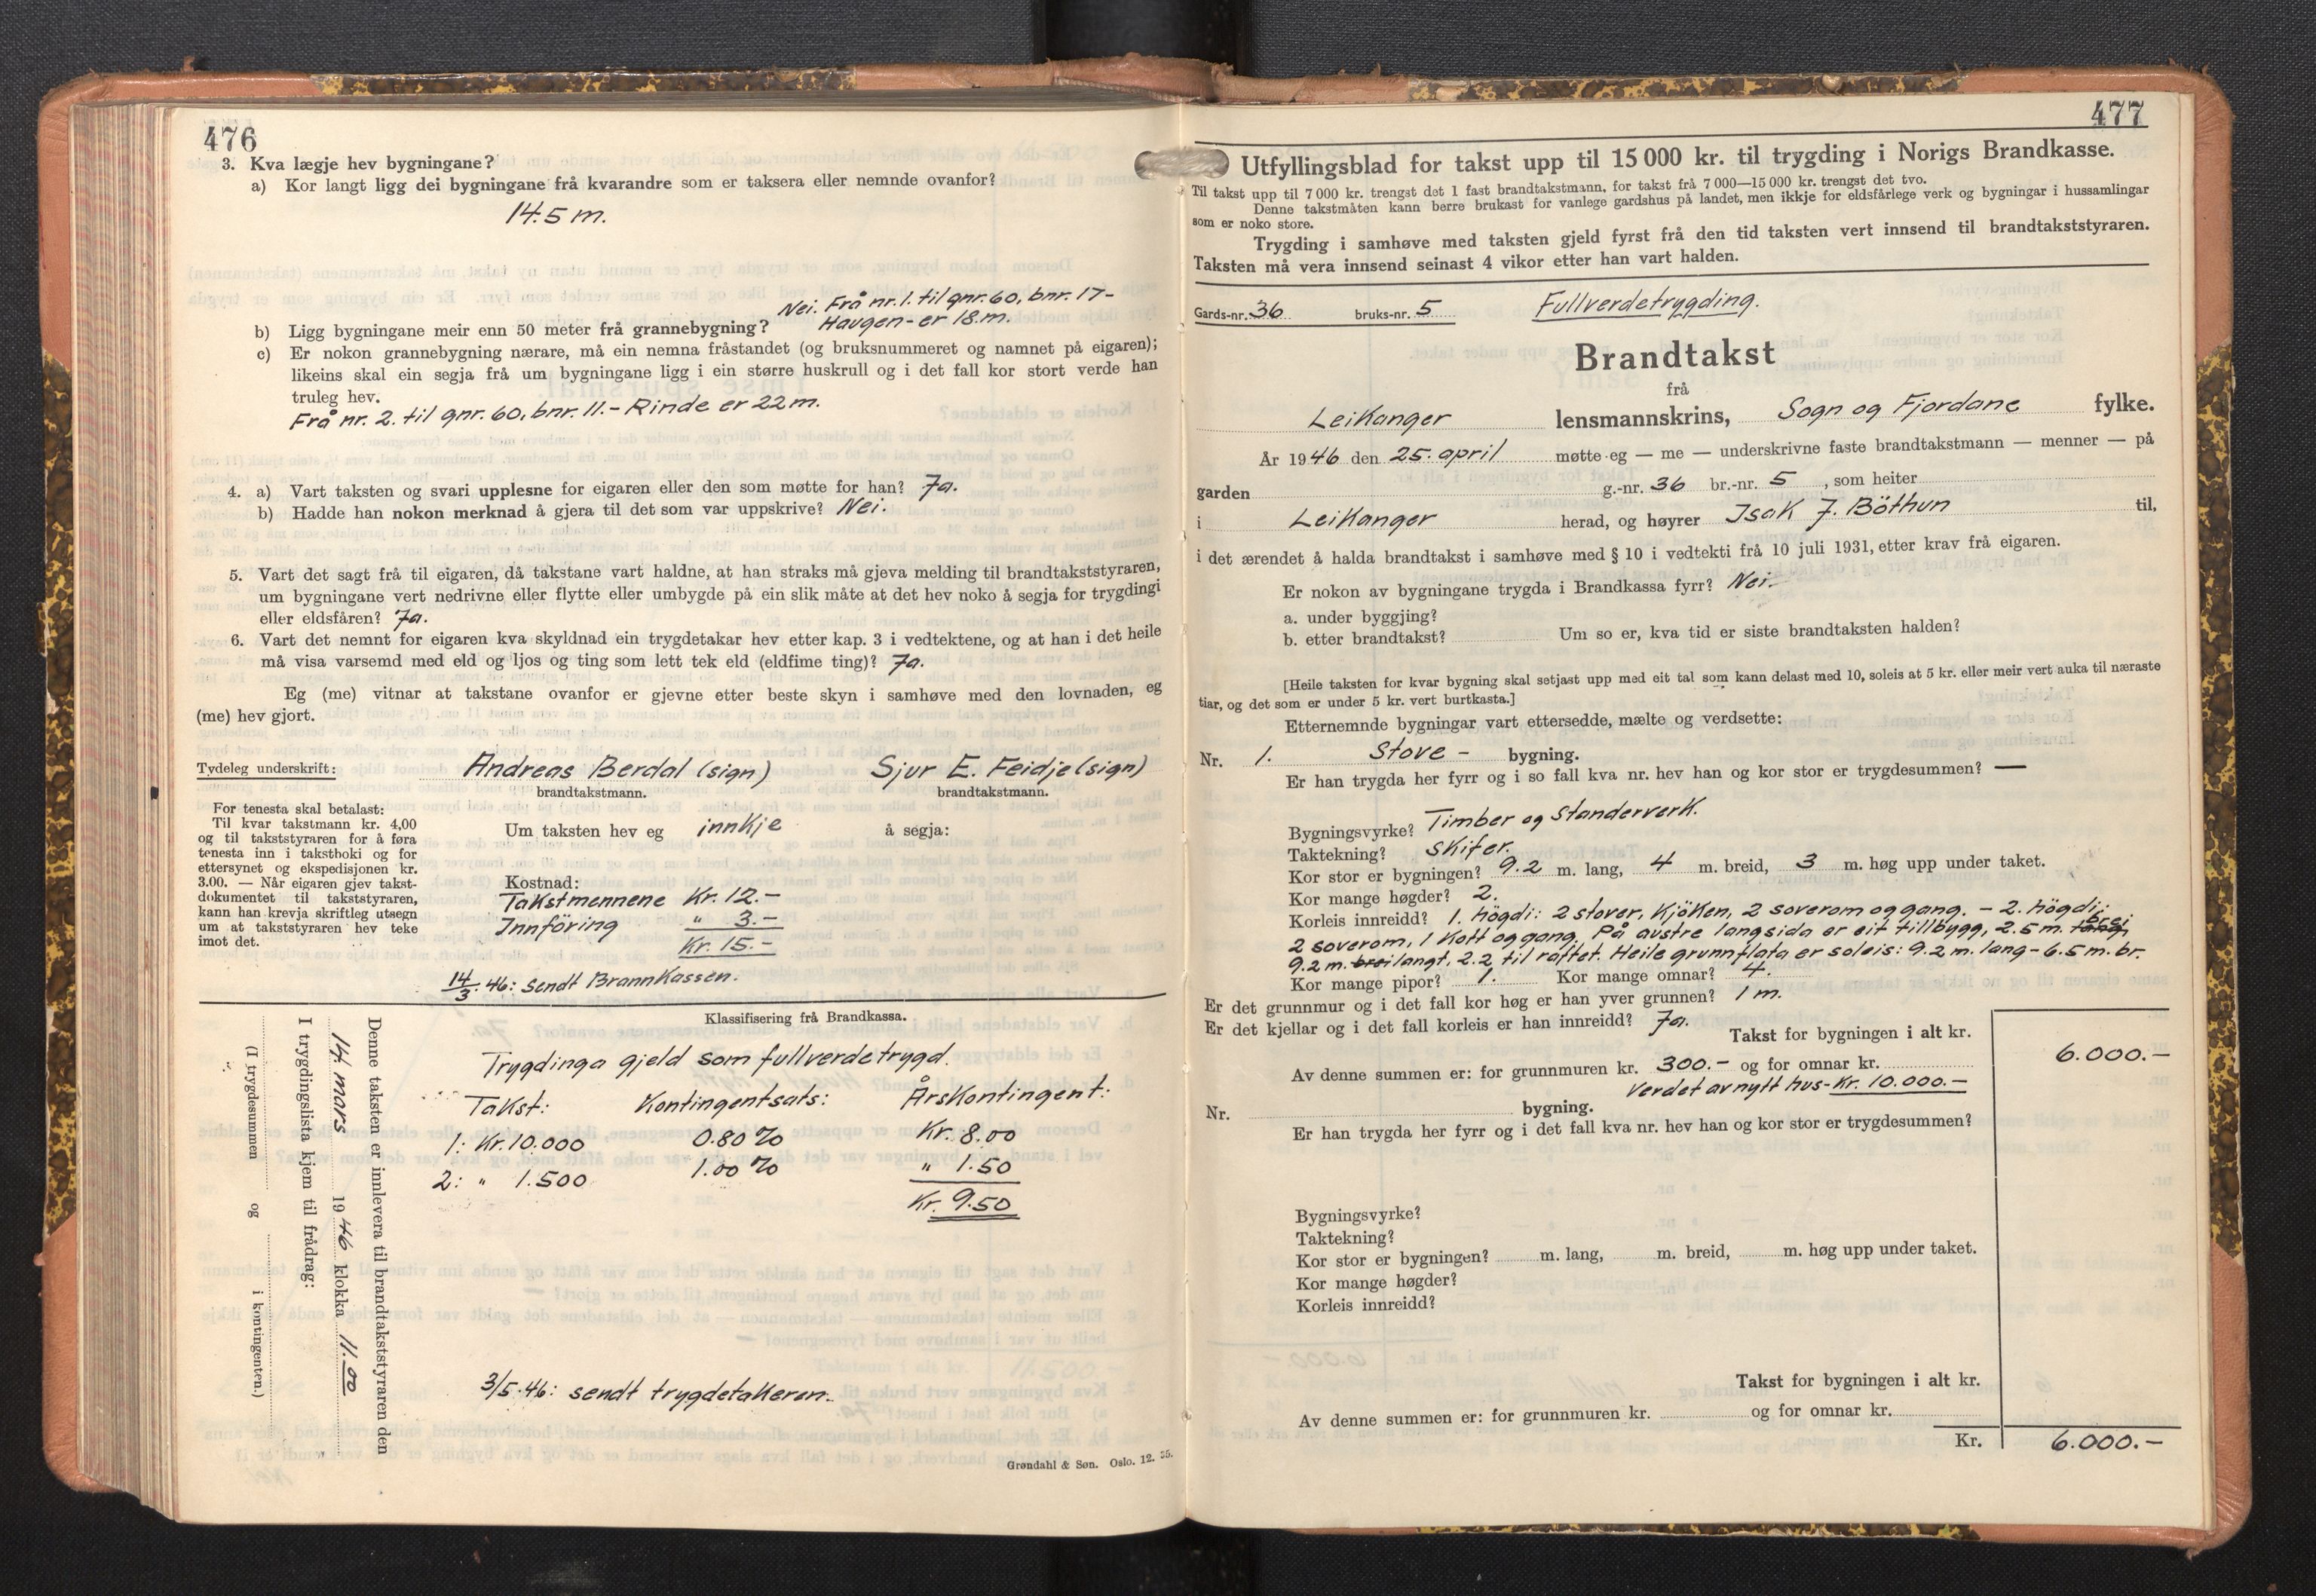 476
3. Kva lægje hev bygningane?
a) Kor langt ligg dei bygningane frå kvarandre som er taksera eller nemnde ovanfor?
14.5 m.
Nei. Frå nr. 1. til gnr. 60, bnr. 17-
b) Ligg bygningane meir enn 50 meter frå grannebygning? Haugen - er 18.m.
c) Er nokon grannebygning nærare, må ein nemna fråstandet (og bruksnummeret og namnet på eigaren);
likeins skal ein segja frå um bygningane ligg i ein større huskrull og i det fall kor stort verde han
truleg hev.
Frå nr. 2. til gnr. 60, bnr. 11. - Rinde er 22 m.
4. a) Vart taksten og svari upplesne for eigaren eller den som møtte for han? Ja.
b) Hadde han nokon merknad å gjera til det som var uppskrive? Nei.
5. Vart det sagt frå til eigaren, då takstane vart haldne, at han straks må gjeva melding til brandtakststyraren,
um bygningane vert nedrivne eller flytte eller umbygde på ein slik måte at det hev noko å segja for trygdingi
eller eldsfåren? Ja.
6. Vart det nemnt for eigaren kva skyldnad ein trygdetakar hev etter kap. 3 i vedtektene, og at han i det heile
må visa varsemd med eld og ljos og ting som lett tek eld (eldfime ting)? Ja.
Eg (me) vitnar at takstane ovanfor er gjevne etter beste skyn i samhøve med den lovnaden, eg
(me) hev gjort.
Tydeleg underskrift: Andreas Berdal (sign) Sjur E. Feidje (sign)
brandtakstmann. brandtakstmann.
For tenesta skal betalast:
Til kvar takstmann kr. 4,00
og til takststyraren for å føra
tenesta inn i takstboki og for
ettersynet og ekspedisjonen kr.
3.00. — Når eigaren gjev takst-
dokumentet til takststyraren,
kann han krevja skriftleg utsegn
um at takststyraren hev teke
imot det.
Um taksten hev eg innkje å segja:
Kostnad:
Takstmennene Kr. 12.-
Innföring " 3.-
Kr. 15.-
14/3. 46: sendt BrannKassen.
Klassifisering frå Brandkassa.
Trygdinga gjeld som fullverdetrygd.
Takst: Kontingentsats: Årskontingent:
1: Kr. 10.000 0.80 % Kr. 8.00
2: " 1.500 1.00 % " 1.50
Kr. 9.50
3/5.46: sendt trygdetakeren.
Denne taksten er innlevera til brandtakststyraren den
14. mars 1946 klokka 11.00
I trygdingslista kjem til frådrag:
(I trygdesummen og i kontingenten.)
Grøndahl & Søn. Oslo. 12. 35.
477
Utfyllingsblad for takst upp til 15 000 kr. til trygding i Norigs Brandkasse.
Til takst upp til 7 000 kr. trengst det 1 fast brandtakstmann, for takst frå 7 000—15 000 kr. trengst det tvo.
Denne takstmåten kann berre brukast for vanlege gardshus på landet, men ikkje for eldsfårlege verk og bygningar i hussamlingar
som er noko store.
Trygding i samhøve med taksten gjeld fyrst frå den tid taksten vert innsend til brandtakststyraren.
Taksten må vera innsend seinast 4 vikor etter han vart halden.
Gards-nr. 36 bruks-nr. 5 Fullverdetrygding.
Brandtakst
frå
Leikanger lensmannskrins, Sogn og Fjordane fylke.
År 1946 den 25. april møtte eg — me — underskrivne faste brandtakstmann — menner — på
garden g.-nr. 36 br.-nr. 5 , som heiter
i Leikanger herad, og høyrer Isak J. Böthun til,
i det ærendet å halda brandtakst i samhøve med § 10 i vedtekti frå 10 juli 1931, etter krav frå eigaren.
Er nokon av bygningane trygda i Brandkassa fyrr? Nei.
a. under byggjing?
b. etter brandtakst? Um so er, kva tid er siste brandtaksten halden?
[Heile taksten for kvar bygning skal setjast upp med eit tal som kann delast med 10, soleis at 5 kr. eller meir vert auka til næraste
tiar, og det som er under 5 kr. vert burtkasta.]
Etternemnde bygningar vart ettersedde, mælte og verdsette:
Nr. 1. Stove - bygning.
Er han trygda her fyrr og i so fall kva nr. hev han og kor stor er trygdesummen? —
Bygningsvyrke? Timber og Standerverk.
Taktekning? Skifer.
Kor stor er bygningen? 9.2 m. lang, 4 m. breid, 3 m. høg upp under taket.
Kor mange høgder? 2.
Korleis innreidd? 1. högdi: 2 stover, Kjöken, 2 soverom og gang. - 2. högdi:
2 soverom, 1 Kott og gang. På austre langsida er eit tillbygg, 2.5 m. lang, brei
9.2 m. brei langt, 2.2 til röftet. Heile grunnflata er soleis: 9.2 m. lang - 6.5 m. br.
Kor mange pipor? 1. Kor mange omnar? 4.
Er det grunnmur og i det fall kor høg er han yver grunnen? 1 m.
Er det kjellar og i det fall korleis er han innreidd? Ja.
Takst for bygningen i alt kr. 6.000.-
Av denne summen er: for grunnmuren kr. 300.- og for omnar kr.
Verdet av nytt hus - Kr. 10.000.-
Nr. bygning.
Er han trygda her fyrr og i det fall kva nr. hev han og kor stor er trygdesummen?
Bygningsvyrke?
Taktekning?
Kor stor er bygningen? m. lang, m. breid, m. høg upp under taket.
Kor mange høgder?
Korleis innreidd?
Takst for bygningen i alt kr.
Av denne summen er: for grunnmuren kr. og for omnar kr.
Kr. 6.000.-